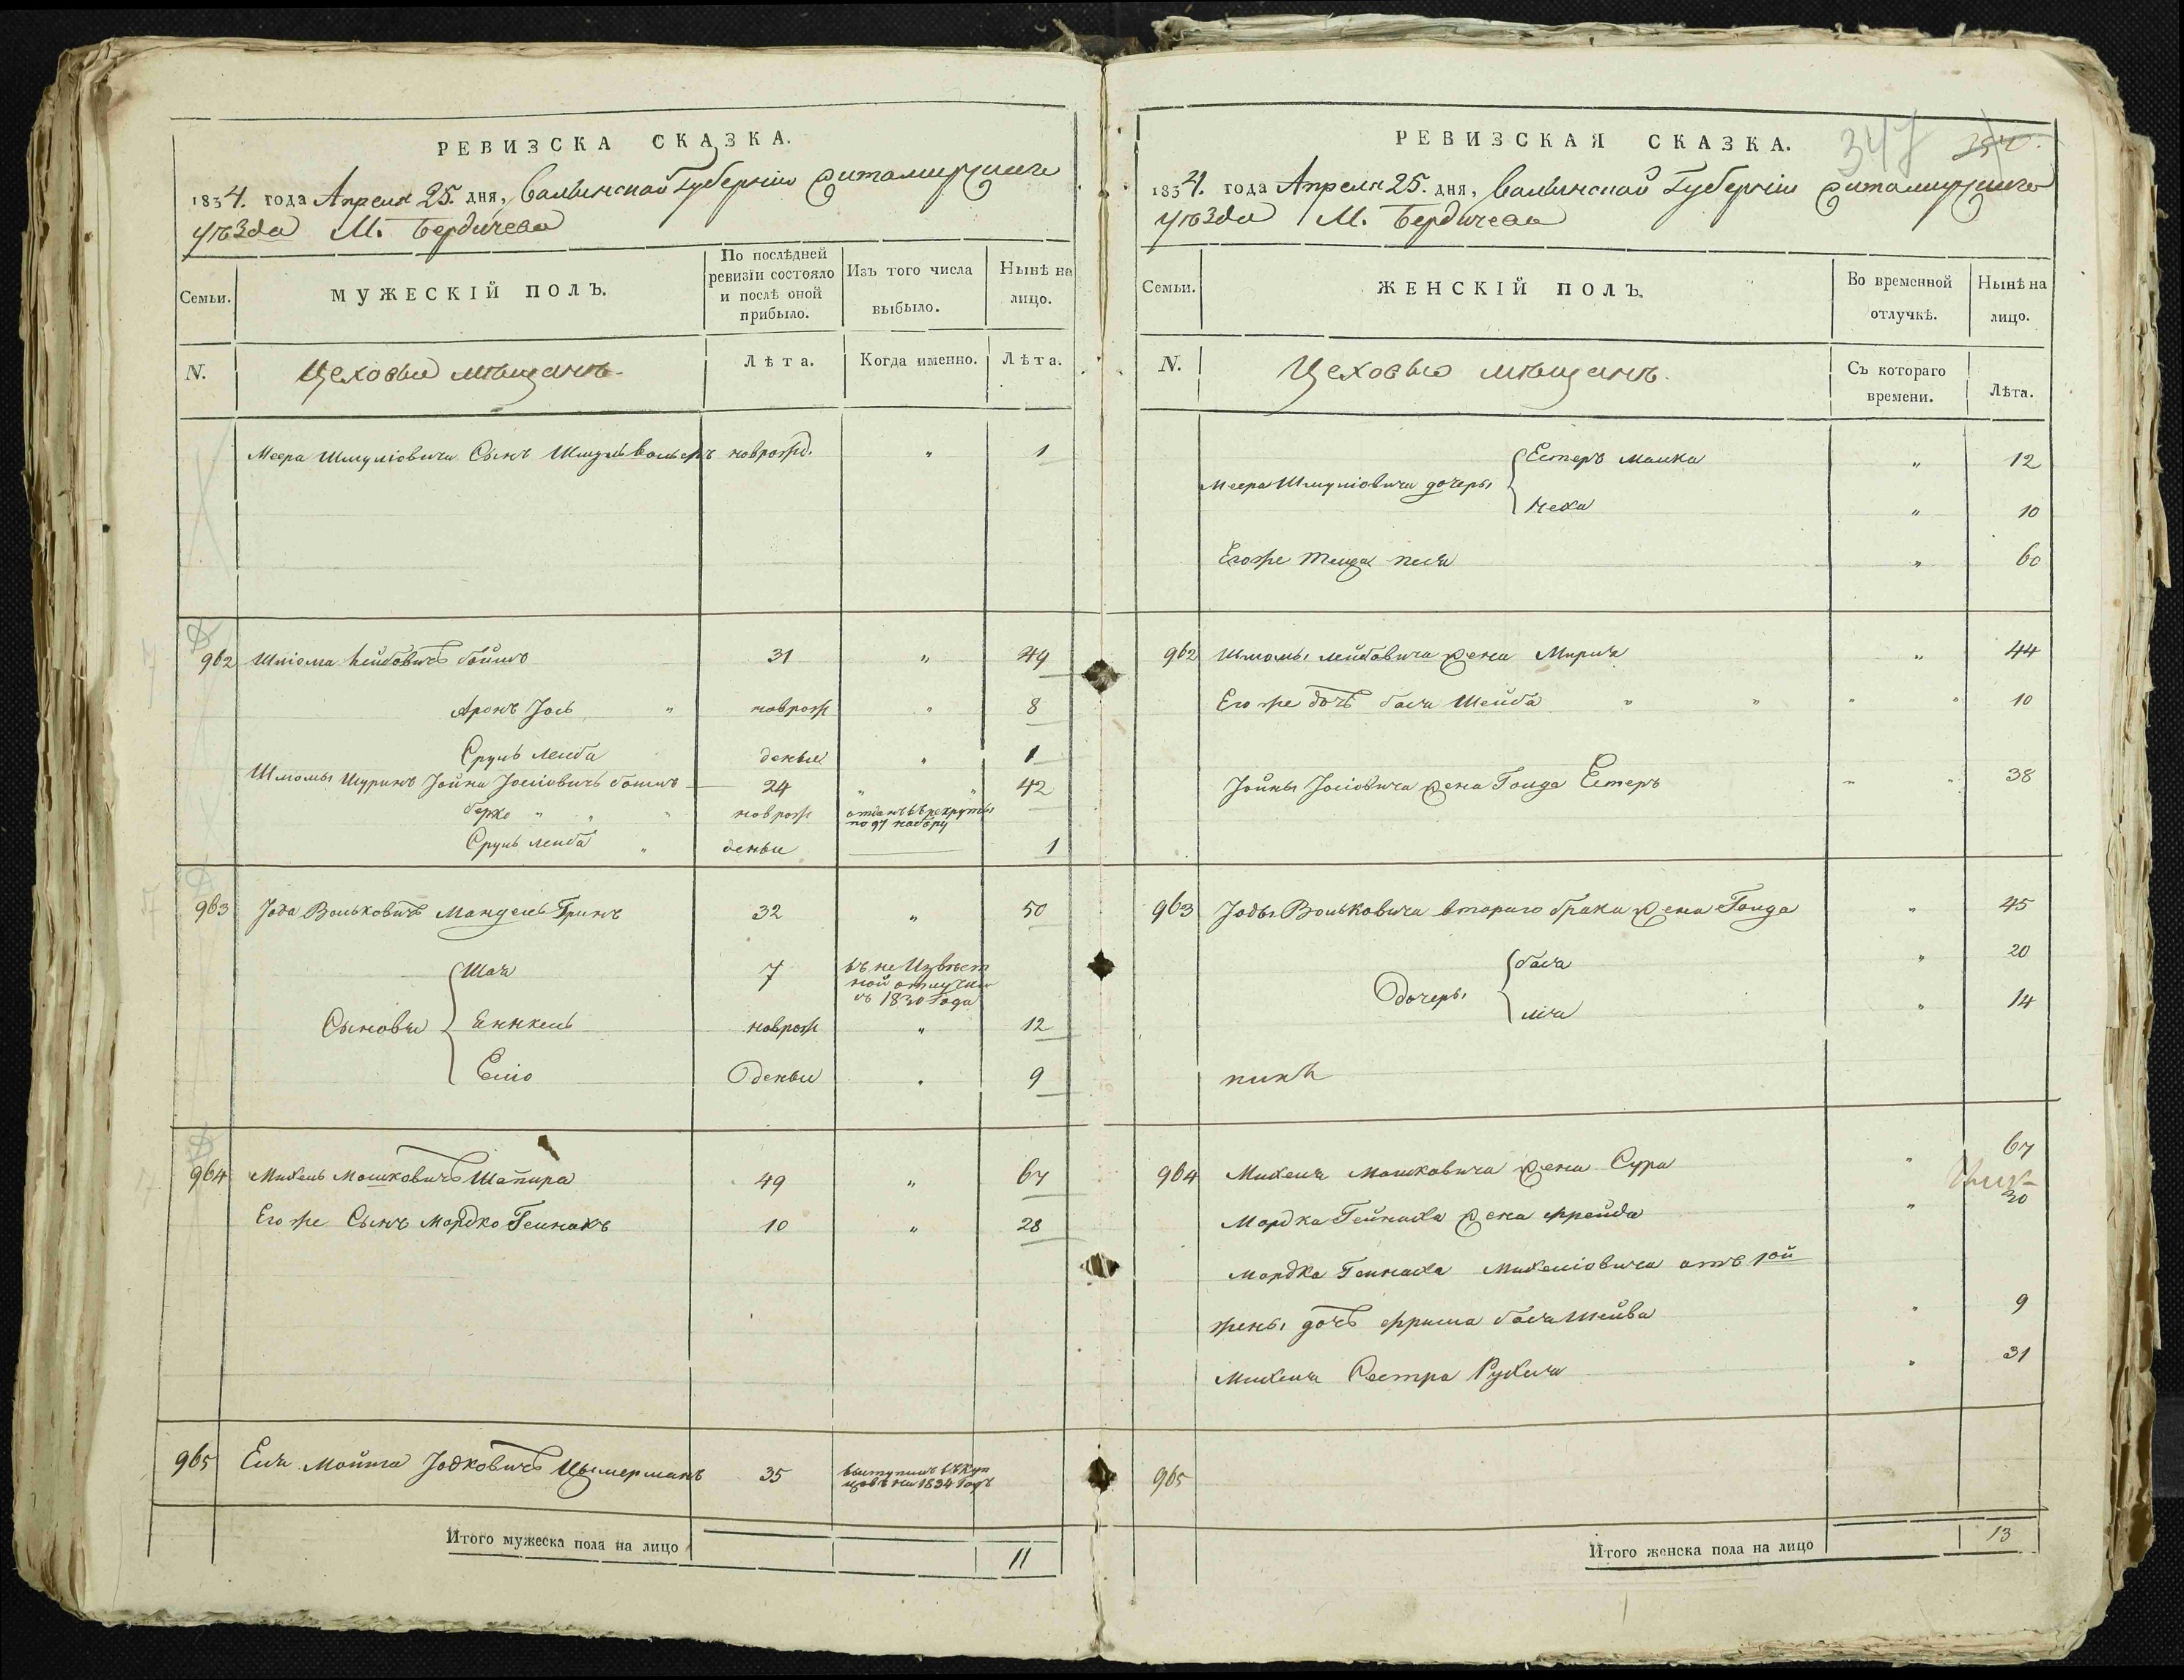 РЕВИЗСКА СКАЗКА.
1834. года Апреля 25. дня, Волынской Губерніи Житомирскаго
уѣзда М. Бердичева
Семьи.
МУЖЕСКІЙ ПОЛЪ.
По послѣдней ревизіи состояло и послѣ оной прибыло.
Изъ того числа выбыло.
Нынѣ на лицо.
N.
Цеховые мѣщане
Лѣта.
Когда именно.
Лѣта.
Меера Шмуліовича Сынъ Шмуль новрожд. " 1
962 Шліома Лейбовичъ 31 " 49
Аронъ Іось " новрож " 8
Сруль Лейба " 1
Шломы Шуринъ Іойна Іосіовичъ 24 " " 42
Берко " " " новрож отданъ въ рекруты
по 97 набору
Сруль Лейба " 1
963 Іода Вольковичъ Мандель Гринъ 32 " 50
Сыновья
Шая 7 въ не Извѣст
ной отлучки
съ 1830 Года
Янкель новрож " 12
Еліо " 9
964 Михель Мошковичъ Шапира 49 " 67
Его же Сынъ Мордко Гейнахъ 10 " 28
965 Еля Мойша Іодковичъ Цымерманъ 35 выступилъ въ куп
цовъ на 1834 Годъ
Итого мужеска пола на лицо 11
РЕВИЗСКАЯ СКАЗКА.
347
1834. года Апреля 25. дня, Волынской Губерніи Житомирскаго
уѣзда М. Бердичева
Семьи.
ЖЕНСКІЙ ПОЛЪ.
Во временной отлучкѣ.
Нынѣ на лицо.
N.
Цеховые мѣщане
Съ котораго времени.
Лѣта.
Меера Шмуліовича дочеры
Естеръ Малка " 12
Неха " 10
Егоже Теща Песя " 60
962 Шломы Лейбовича жена Мирля " 44
Его же дочь Бася Шейва " " " " 10
Іойны Іосіовича жена Голда Естеръ " " 38
963 Іоды Вольковича втораго брака жена Голда " 45
Дочеры
Бася " 20
Лія " 14
964 Михеля Мошковича жена Сура " 67
Мордка Гейнаха жена Фрейда " 30
Мордка Гейнаха Михеліовича отъ 1ой
жены дочь Фрима Бася Шейва " 9
Михеля Сестра Рухля " 31
965
Итого женска пола на лицо 13